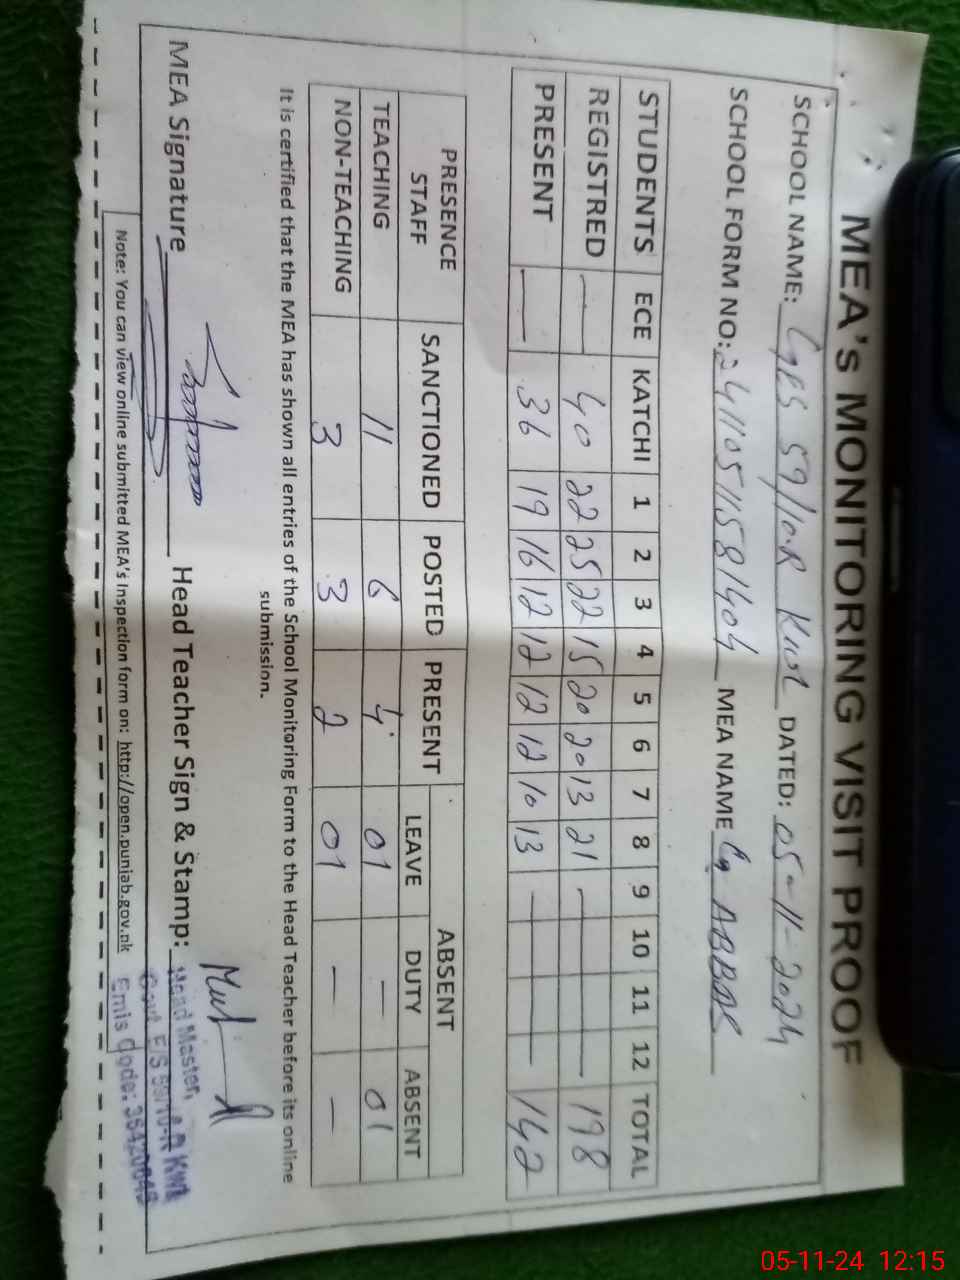 MEA's MONITORING VISIT PROOF
SCHOOL NAME: GES 59/10.R Kwl DATED: 05-11-2024
SCHOOL FORM NO: MEA NAME ABBAS
STUDENTS ECE KATCHI 1 2 3 4 5 6 7 8 9 10 11 12 TOTAL
REGISTRED — 40 22 25 22 15 20 20 13 21 — 198
PRESENT — 36 19 16 12 12 12 12 10 13 — 142
PRESENCE STAFF SANCTIONED POSTED PRESENT ABSENT
LEAVE DUTY ABSENT
TEACHING 11 6 4 01 — 01
NON-TEACHING 3 3 2 01 — —
It is certified that the MEA has shown all entries of the School Monitoring Form to the Head Teacher before its online
submission.
MEA Signature Head Teacher Sign & Stamp:
Head Master,
Govt. E/S 59/10-R KWL
Emis Code:
Note: You can view online submitted MEA's Inspection form on: http://open.punjab.gov.pk
05-11-24 12:15